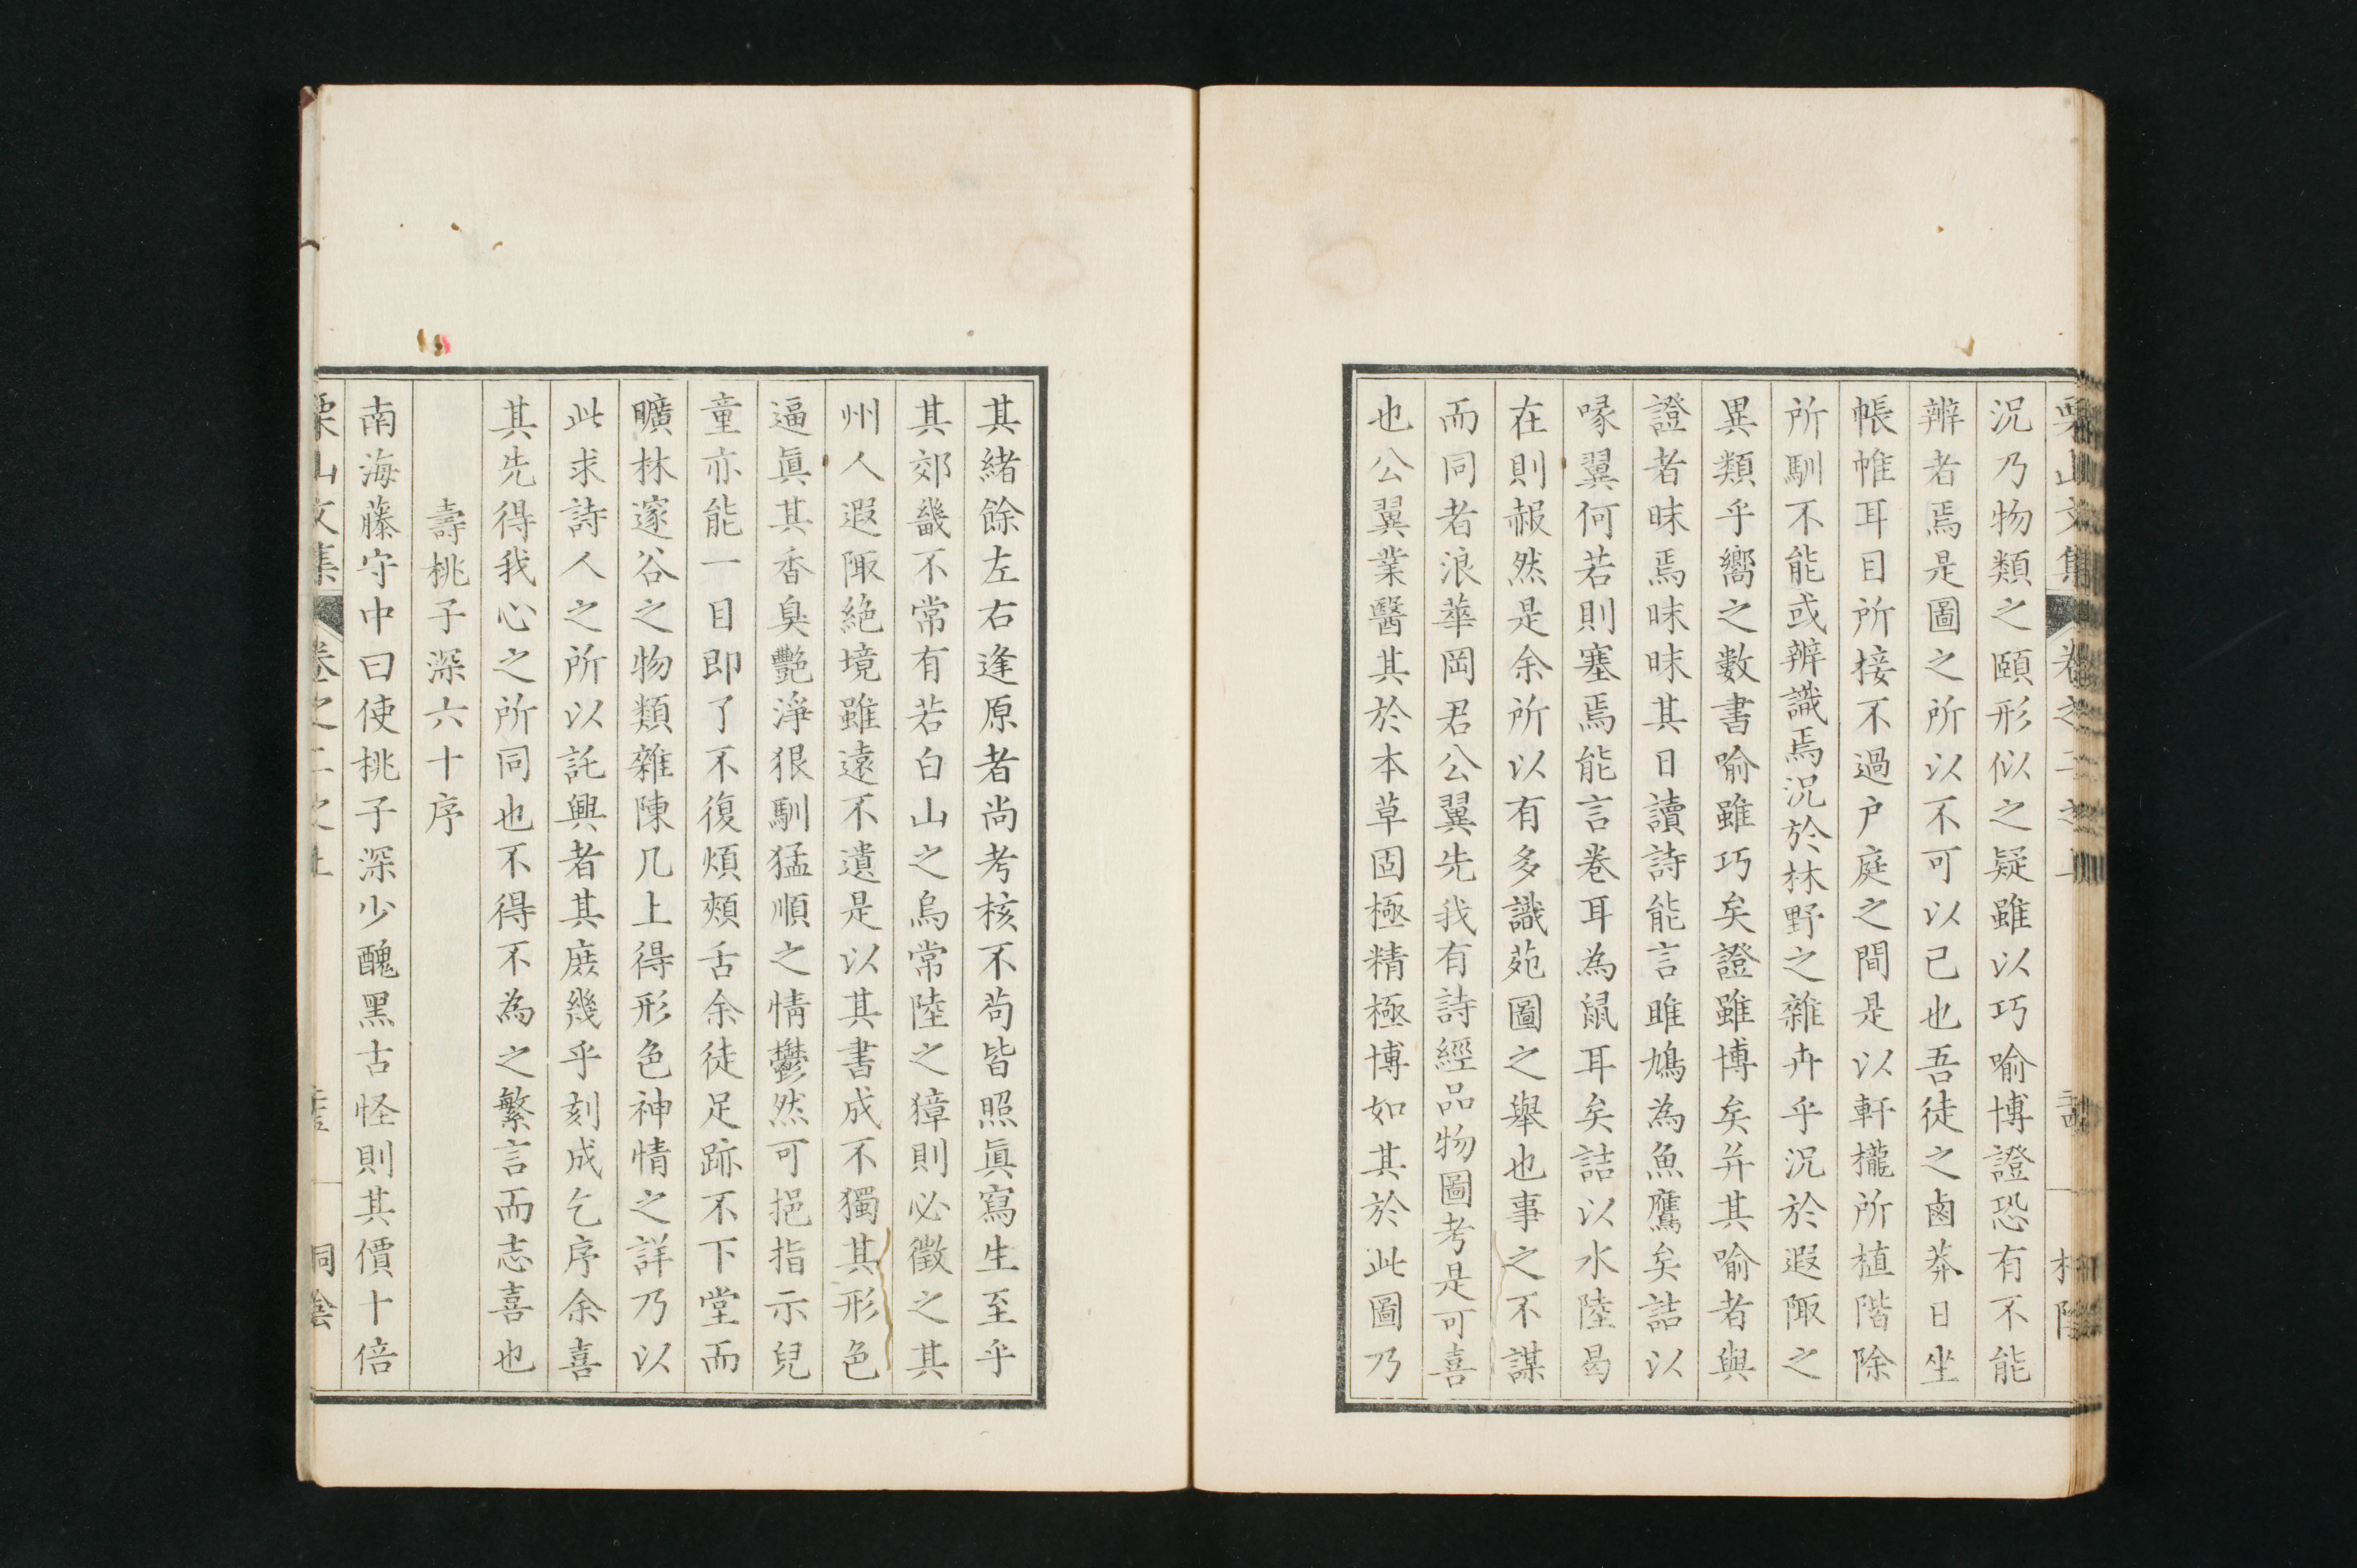 況乃物類之頤形似之疑雖以巧喻博證恐有不能
辨者焉是圖之所以不可以已也吾徒之鹵莽日坐
帳帷耳目所接不過户庭之間是以軒櫳所植階除
所馴不能或辨識焉況於林野之雜卉乎況於遐陬之
異類乎嚮之數書喻雖巧矣證雖博矣并其喻者與
證者昧焉昧昧其日讀詩能言雎鳩為魚鷹矣詰以
喙翼何若則塞焉能言卷耳為鼠耳矣詰以水陸曷
在則赧然是余所以有多識苑圖之舉也事之不謀
而同者浪華岡君公翼先我有詩經品物圖考是可喜
也公翼業醫其於本草固極精極博如其於此圖乃
其緒餘左右逢原者尚考核不苟皆照眞寫生至乎
其郊畿不常有若白山之烏常陸之獐則必徵之其
州人遐陬絶境雖遠不遺是以其書成不獨其形色
逼眞其香臭艷淨狠馴猛順之情鬱然可挹指示兒
童亦能一目即了不復煩頰舌余徒足跡不下堂而
曠林邃谷之物類雜陳几上得形色神情之詳乃以
此求詩人之所以託興者其庶幾乎刻成乞序余喜
其先得我心之所同也不得不為之繁言而志喜也
壽桃子深六十序
南海藤守中曰使桃子深少醜黑古怪則其價十倍
栗山文集 卷之二之上